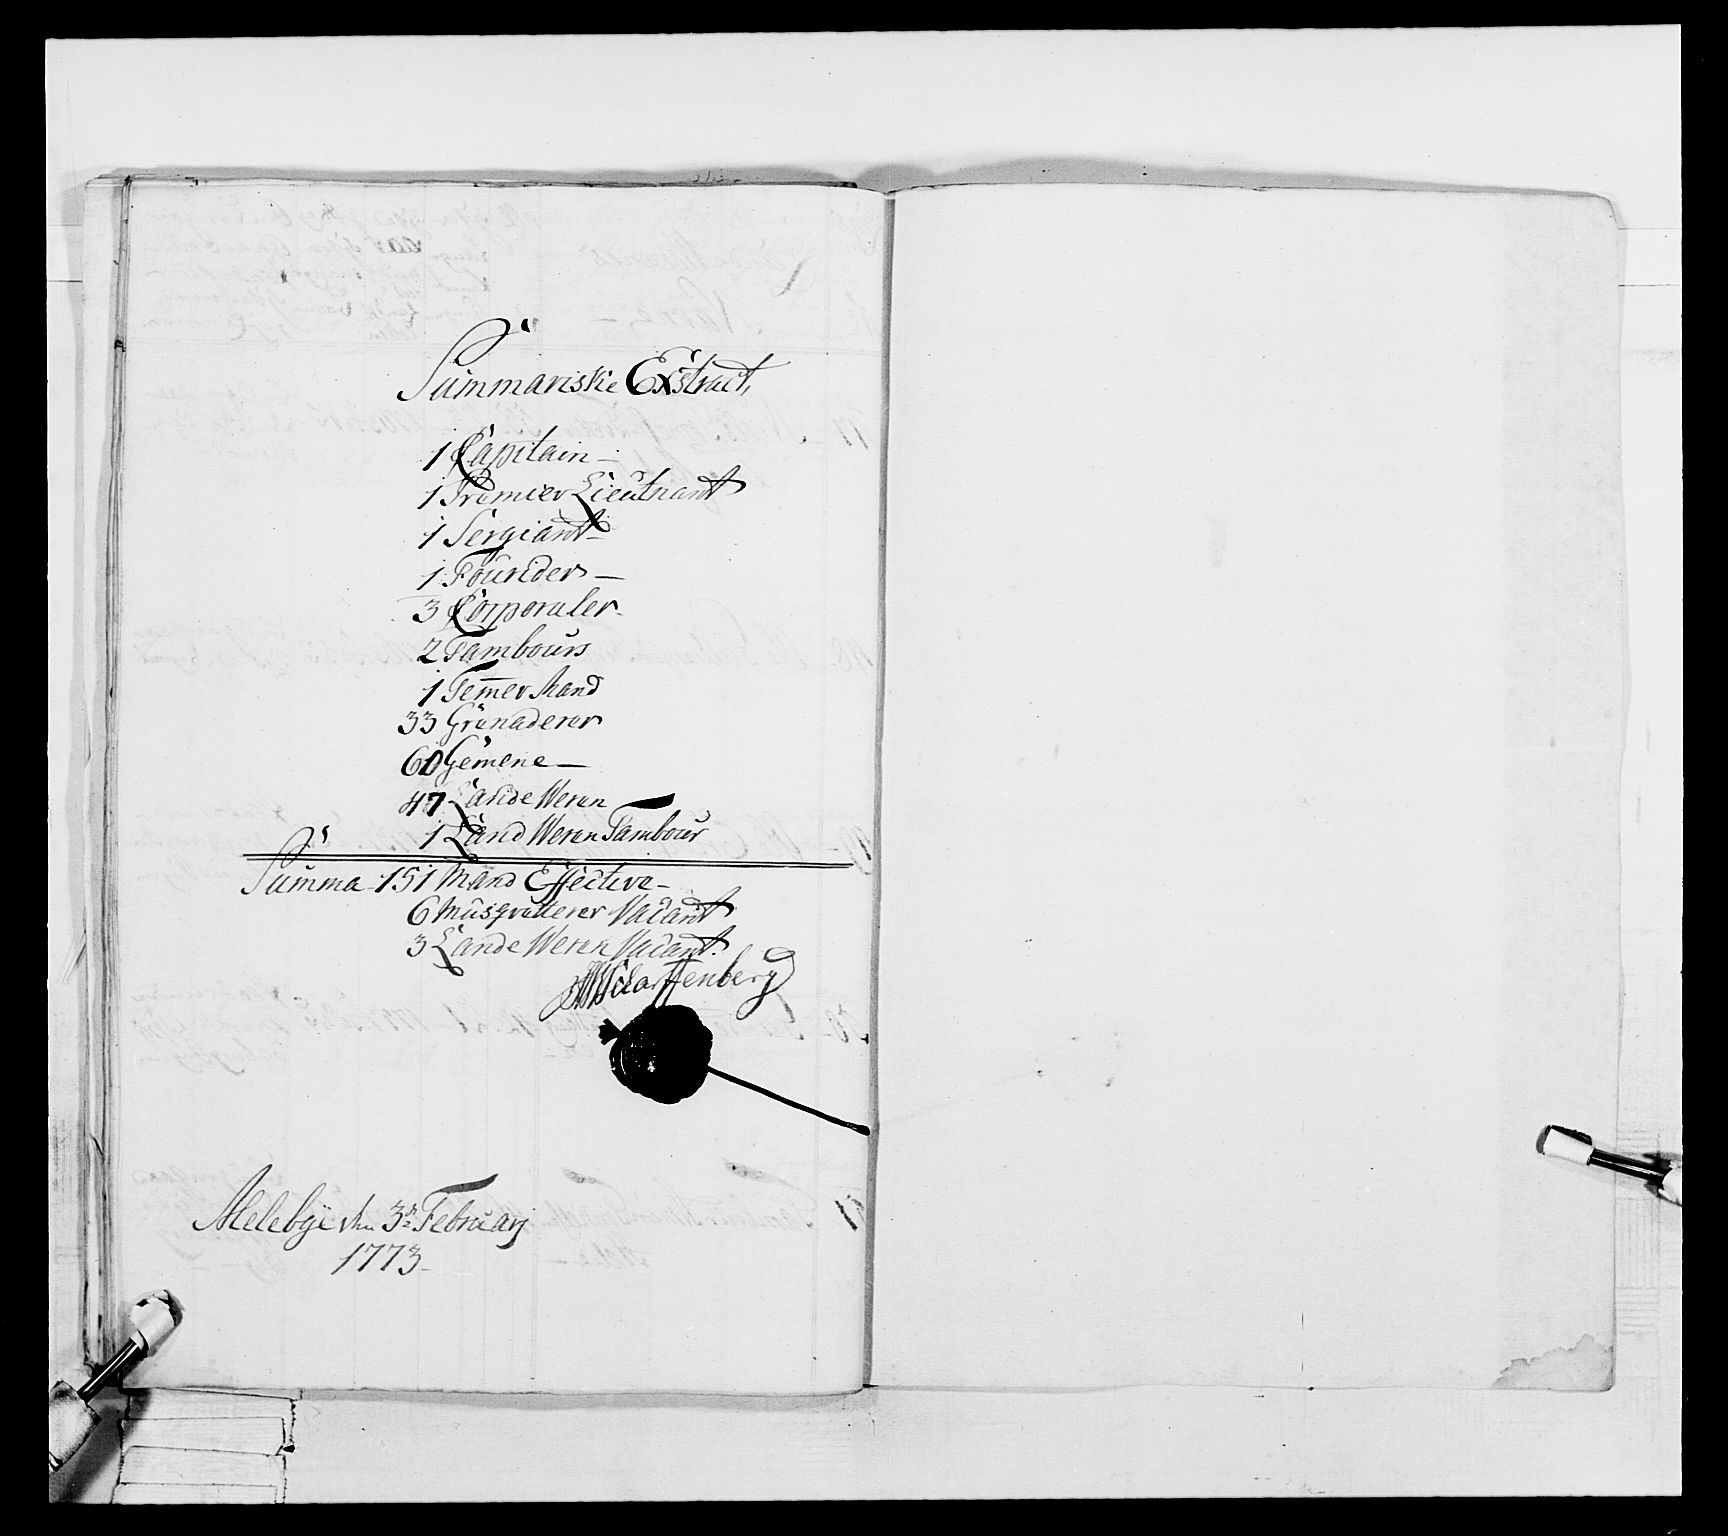 Summariske Exstract,
1 Capitain —
1 Premier Lieutnant
1 Sergiant —
1 Fourider —
3 Corporaler
2 Tambours
1 Temer Mand
33 Grenaderer
60 Gemene —
47 Lande Weren
1 Land Weren Tambour
Summa 151 Mand Effective —
6 Musqvetterer Vacant
3 Lande Weren Vacant.
Scharffenberg
Melebye den 3de Februarj
1773